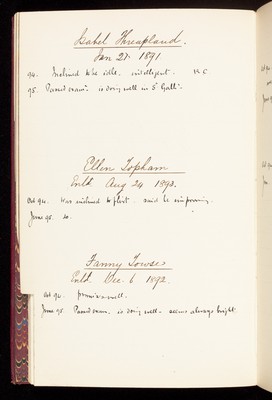 Isabel Threapland.
Jan 27. 1891.
94. Inclined to be idle. intelligent.
95. Passed exam". is doing well in 5 Gall".
Ellen Topham
Entd Aug 24 1892.
Oct 94. Was inclined to flirt. said to be improving.
June 95. do.
Fanny Towse
Entd Dec. 6 1892.
Oct 94. promises well.
June 95. Passed exam. is doing well - seems always bright